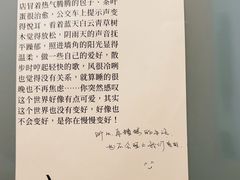 店冒着热气腾腾的包子、茶叶
蛋很治愈，公交车上提示声变
得悦耳，看着蓝天白云青草树
木觉得放松，阴雨天的声音抚
平躁郁，照进墙角的阳光显得
温柔，做一些自己的爱好，散
步时哼起轻快的歌，风很冷刚
也觉得没有关系，就算睡的很
晚也不再焦虑……你突然感叹
这个世界好像有点可爱，其实
这个世界没有变好，好像也
不会变好，是你在慢慢变好！
所以
也不会